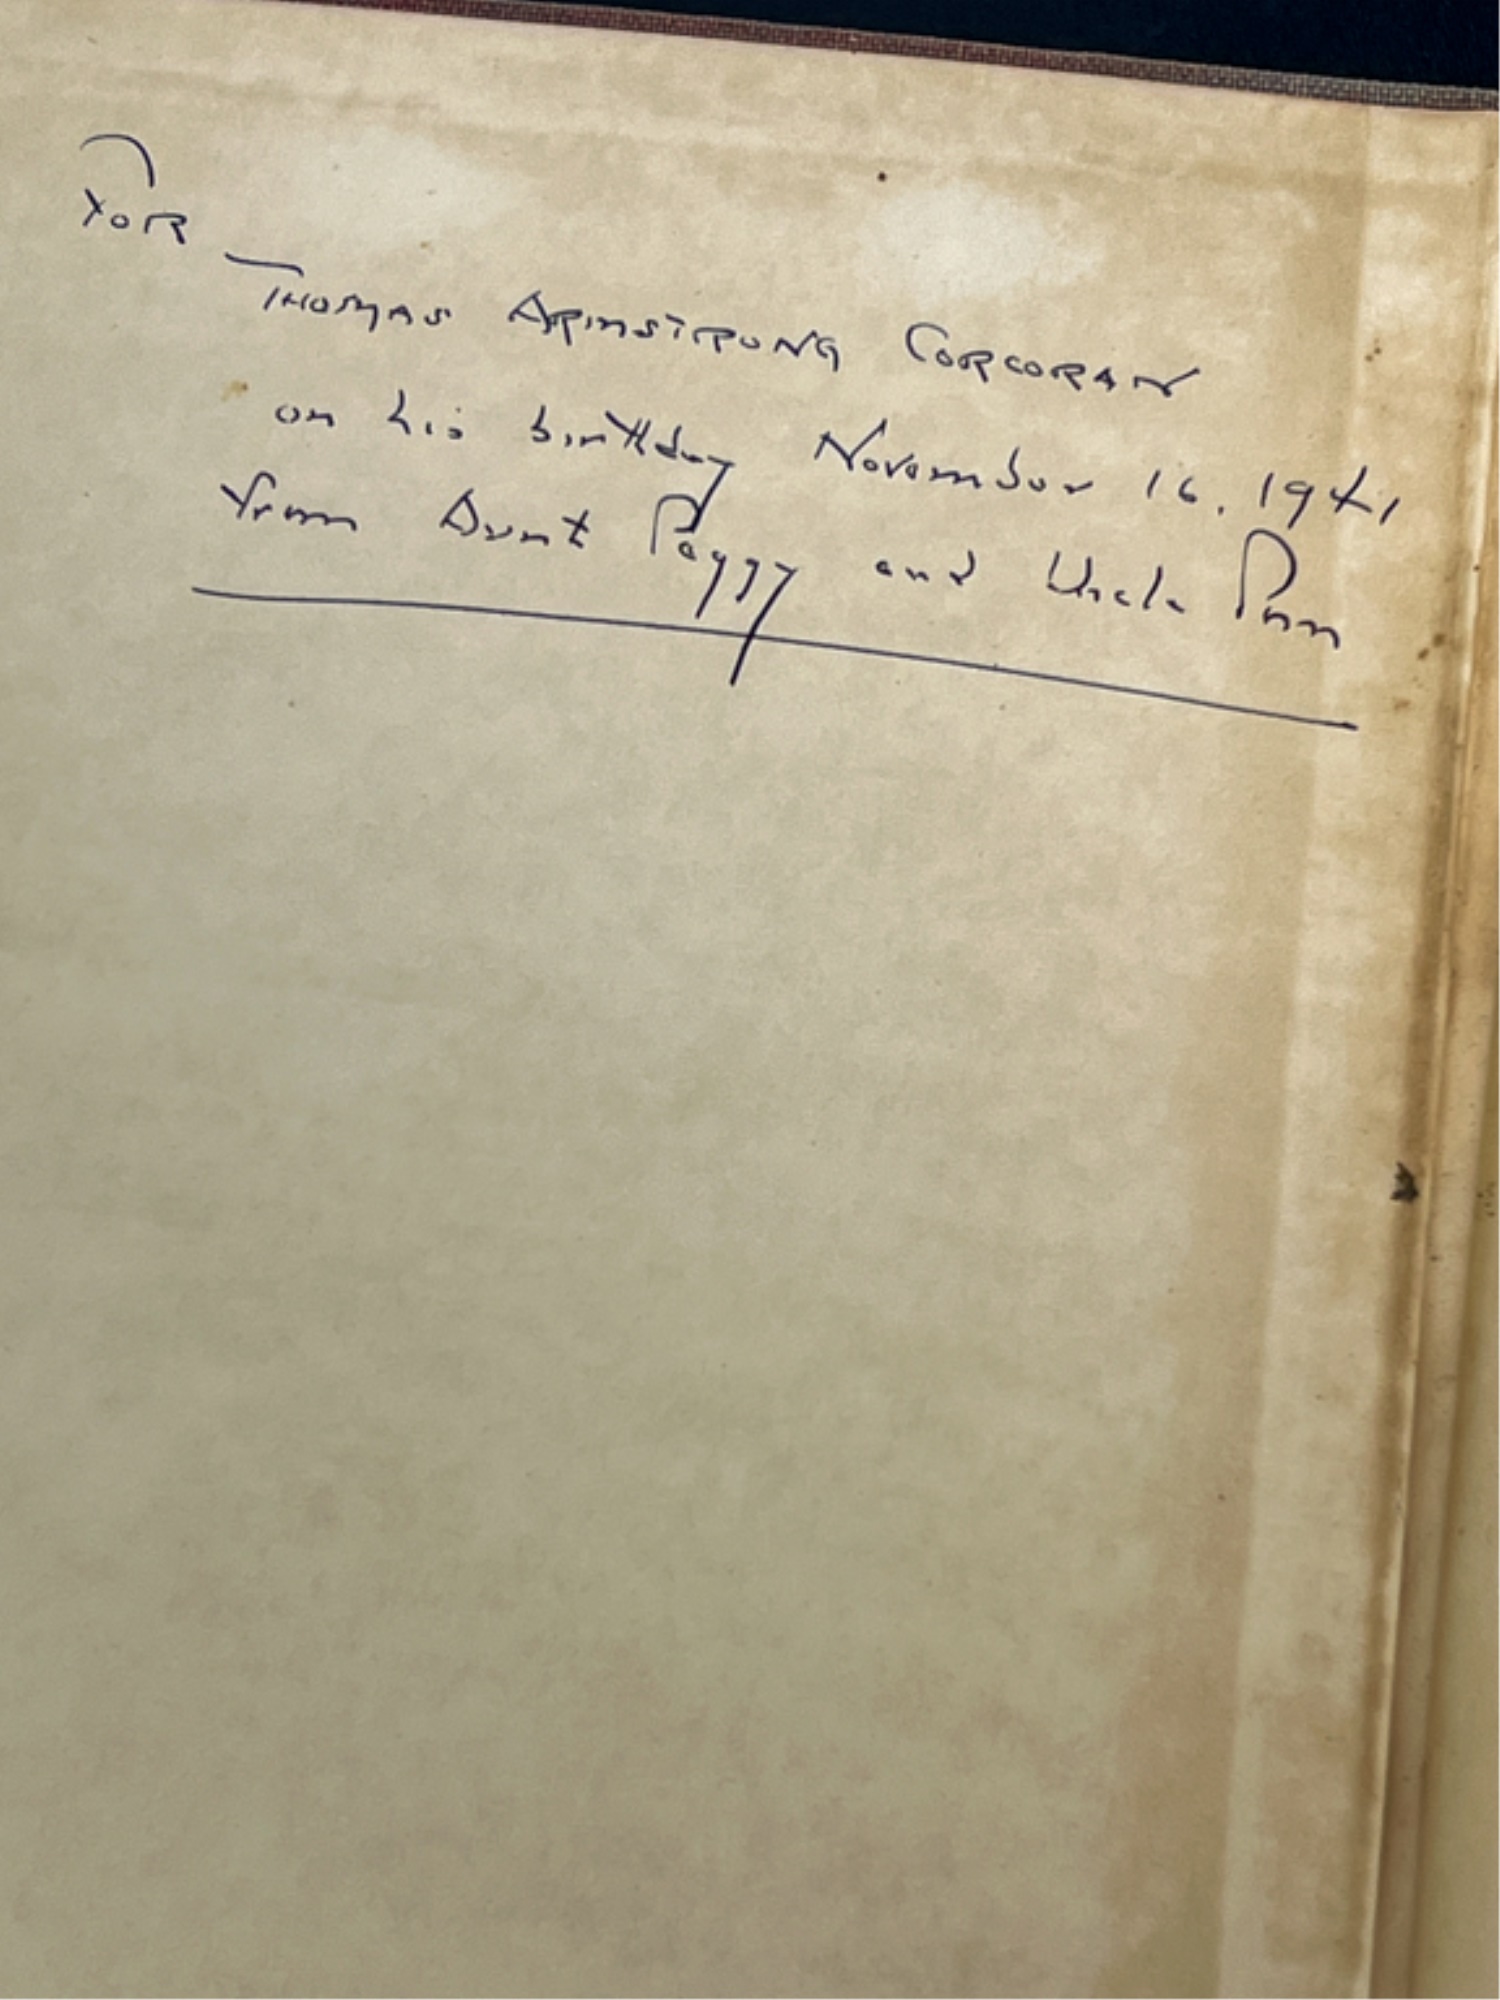 FOR
THOMAS ARMSTRONG CORCORAN
on his birthday November 16, 1941
from Aunt Peggy and Uncle